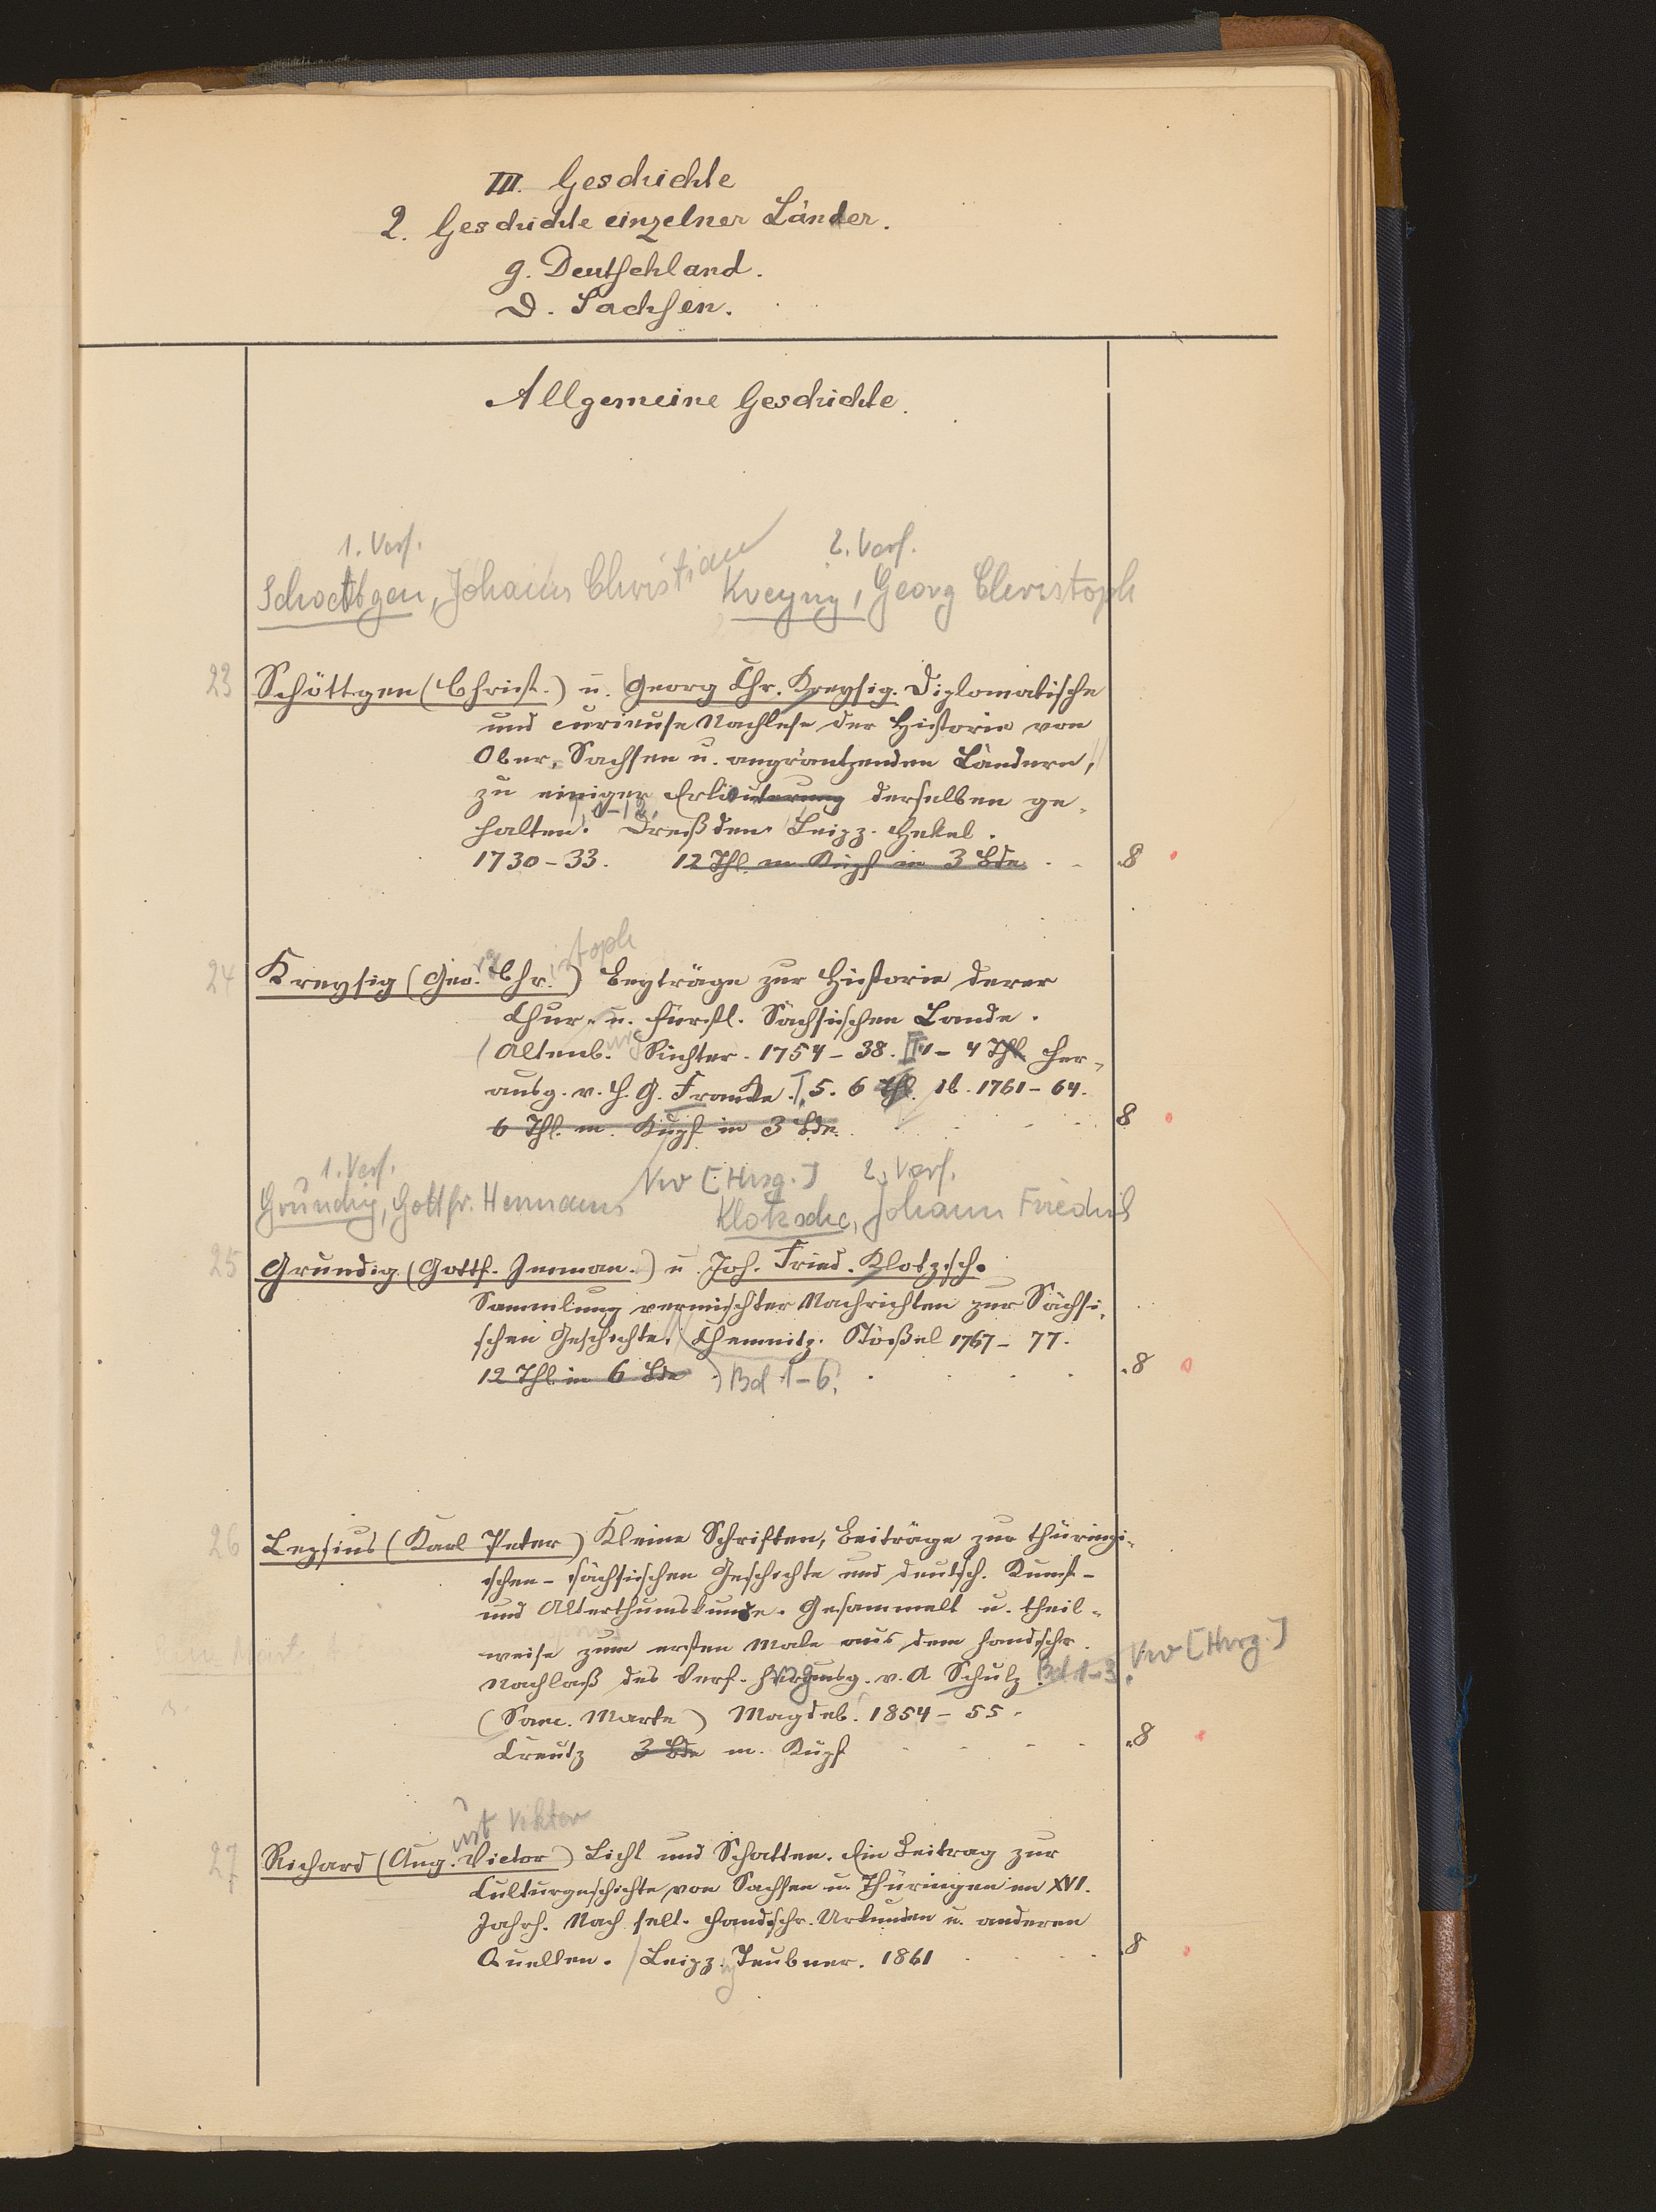 III. Geschichte
2. Geschichte einzelner Länder.
g. Deutschland.
D. Sachsen.
Allgemeine Geschichte.
1. Verf. 2. Verf.
Schoettgen, Johann Christian Kreysig, Georg Christoph
23 Schöttgen (Christ.) u. Georg Chr. Kreysig. Diplomatische
und curieuse Nachlese der Historie von
Ober-Sachsen u. angräntzenden Ländern,
zu einiger Erläuterung derselben ge-
1-12.
halten. Dreßden Leipz. Hekel.
1730-33. 12 Thl. m Kupf in 3 Bde . . 8
rg istoph
24 Kreysig (Geo. Chr.) Beyträge zur Historie derer
Chur- u. Fürstl. Sächsischen Lande.
(Altenb. Richter. 1754-38. 1-4 Thl. her-
ausg. v. H. G. Francke. 5. 6 Thl. Ib. 1761-64.
6 Thl. m. Kupf in 3 Bde. 8
1. Verf. Vw [Hrsg.] 2. Verf.
Gründig, Gottfr. Klotzsche, Johann Friedrich
25 Grundig (Gottf. Imman.) u Joh. Fried. Klotzsch.
Sammlung vermischter Nachrichten zur Sächsi-
schen Geschichte. (Chemnitz. Stößel 1767-77.
12 Thl. in 6 Bde ) Bd 1-6. 8
26 Lepsius (Karl Peter) Kleine Schriften, Beiträge zur thüringi-
schen-sächsischen Geschichte und deutsch. Kunst-
und Alterthumskunde. Gesammelt u. theil-
weise zum ersten Male aus dem handschr.
Nachlaß des Verf. herausg. v. A Schulz Bd. 1-3. Vw [Hrsg.]
(San. Marte) Magdeb. 1854-55.
Creutz 3 Bde m. Kupf 8
ust Viktor
27 Richard (Aug. Victor) Licht und Schatten. Ein Beitrag zur
Culturgeschichte von Sachsen u. Thüringen im XVI.
Jahrh. Nach selt. handschr. Urkunden u. anderen
Quellen. Leipz. Teubner. 1861 8